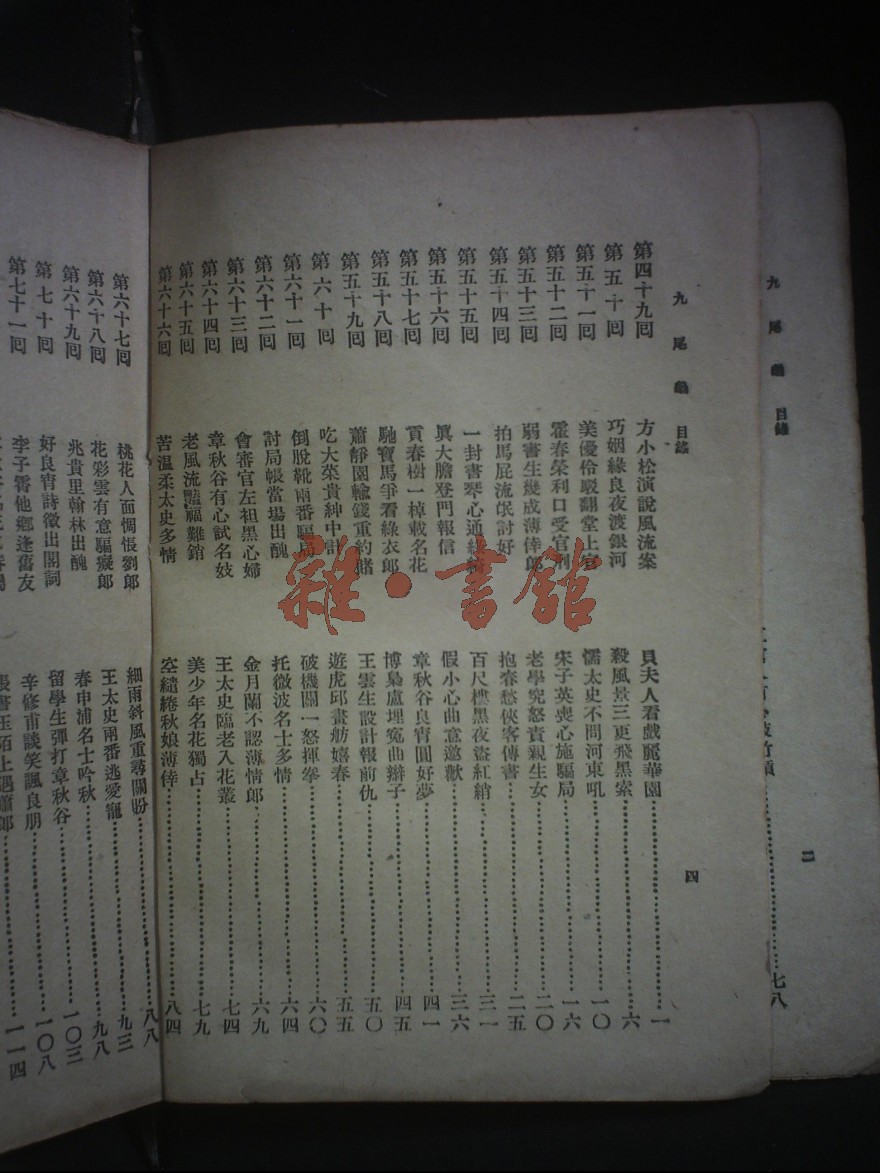 九尾龜 目錄 四
第四十九回 方小松演說風流案 貝夫人看戲麗華園 一
第五十回 巧姻緣良夜渡銀河 殺風景三更飛黑索 六
第五十一回 美優伶駁翻堂上官 懦太史不問河東吼 一〇
第五十二回 霍春榮利口受官刑 宋子英喪心施騙局 一六
第五十三回 弱書生幾成薄倖郎 老學究怒責親生女 二〇
第五十四回 拍馬屁流氓討好 抱春愁俠客傳書 二五
第五十五回 一封書琴心通 百尺樓黑夜盜紅綃 三一
第五十六回 眞大膽登門報信 假小心曲意邀歡 三六
第五十七回 貢春樹一棹載名花 章秋谷良宵圓好夢 四一
第五十八回 馳寶馬爭看綠衣郎 博梟盧埋冤曲辮子 四五
第五十九回 蕭靜園輸錢重約賭 王雲生設計報前仇 五〇
第六十回 吃大菜貴紳中計 遊虎邱畫舫嬉春 五五
第六十一回 倒脫靴兩番騙局 破機關一怒揮拳 六〇
第六十二回 討局帳當場出醜 托微波名士多情 六四
第六十三回 會審官左袒黑心婦 金月蘭不認薄情郎 六九
第六十四回 章秋谷有心試名妓 王太史臨老入花叢 七四
第六十五回 老風流豔福難銷 美少年名花獨占 七九
第六十六回 苦溫柔太史多情 空繾綣秋娘薄倖 八四
第六十七回 桃花人面惆悵劉郎 細雨斜風重尋關盼 八八
第六十八回 花彩雲有意騙癡郎 王太史兩番逃愛寵 九三
第六十九回 兆貴里翰林出醜 春申浦名士吟秋 九八
第七十回 好良宵詩徵出閣詞 留學生彈打章秋谷 一〇三
第七十一回 李子霄他鄉逢舊友 辛修甫談笑諷良朋 一〇八
陌上遇蕭郎 一一四
九尾龜 目錄 二
七八
雜·書館